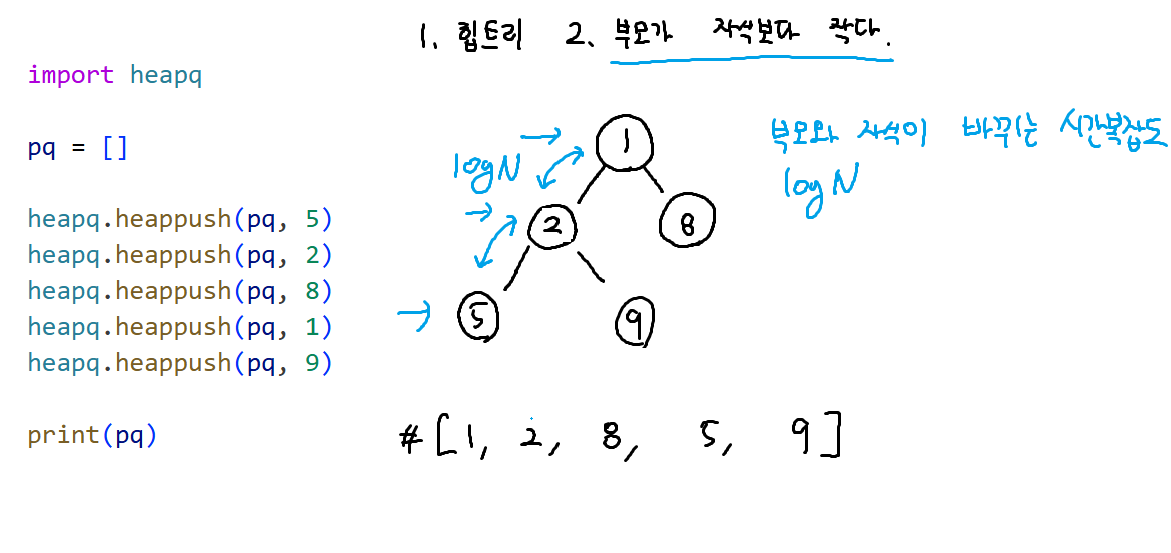 1. 힙트리 2. 부모가 자식보다 작다.
import heapq
pq = []
heapq.heappush(pq, 5)
heapq.heappush(pq, 2)
heapq.heappush(pq, 8)
heapq.heappush(pq, 1)
heapq.heappush(pq, 9)
print(pq)
logN
1
2
8
5
9
부모와 자식이 바뀌는 시간복잡도
logN
#[1, 2, 8, 5, 9]